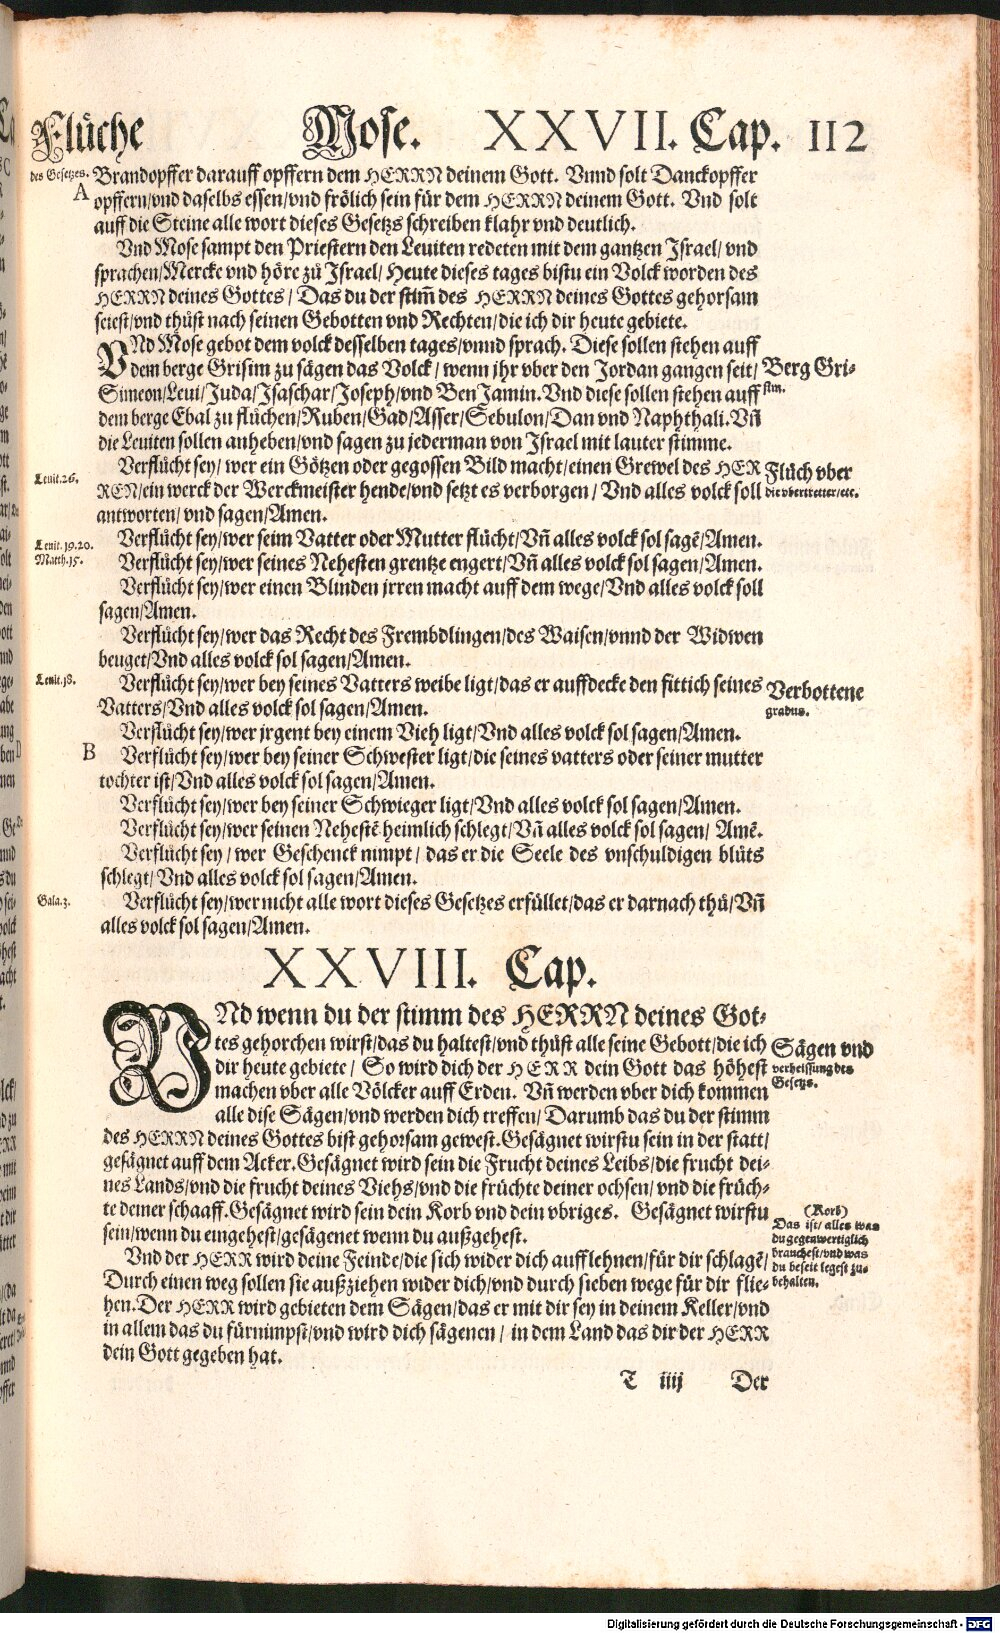 Flüche Mose. XXVII. Cap. 112
des Gesetzes.
A
Brandopffer darauff opffern dem HERRN deinem Gott. Vnnd solt Danckopffer
opffern/vnd daselbs essen/vnd frölich sein für dem HERRN deinem Gott. Vnd solt
auff die Steine alle wort dieses Gesetzs schreiben klahr vnd deutlich.
Vnd Mose sampt den Priestern den Leuiten redeten mit dem gantzen Israel/ vnd
sprachen/Mercke vnd höre zů Israel/ Heute dieses tages bistu ein Volck worden des
HERRN deines Gottes/ Das du der stim̄ des HERRN deines Gottes gehorsam
seiest/vnd thůst nach seinen Gebotten vnd Rechten/die ich dir heute gebiete.
VNd Mose gebot dem volck desselben tages/vnnd sprach. Diese sollen stehen auff
dem berge Grisim zu sägen das Volck/ wenn jhr vber den Jordan gangen seit/
Berg Gri-
sim.
Simeon/Leui/Juda/Isaschar/Joseph/vnd BenJamin. Vnd diese sollen stehen auff
dem berge Ebal zu flůchen/Ruben/Gad/Asser/Sebulon/Dan vnd Naphthali. Vñ
die Leuiten sollen anheben/vnd sagen zu jederman von Israel mit lauter stimme.
Verflůcht sey/ wer ein Götzen oder gegossen Bild macht/einen Grewel des HER
Flůch vber
die vbertretter/etc.
Leuit.26.
REN/ein werck der Werckmeister hende/vnd setzt es verborgen/ Vnd alles volck soll
antworten/ vnd sagen/Amen.
Verflůcht sey/wer seim Vatter oder Mutter flůcht/Vñ alles volck sol sagē/Amen.
Leuit.19.20.
Matth.15.
Verflůcht sey/wer seines Nehesten grentze engert/Vñ alles volck sol sagen/Amen.
Verflůcht sey/wer einen Blinden jrren macht auff dem wege/Vnd alles volck soll
sagen/Amen.
Verflůcht sey/wer das Recht des Frembdlingen/des Waisen/vnnd der Widwen
beuget/Vnd alles volck sol sagen/Amen.
Leuit.18.
Verflůcht sey/wer bey seines Vatters weibe ligt/das er auffdecke den fittich seines
Verbottene
gradus.
Vatters/Vnd alles volck sol sagen/Amen.
Verflůcht sey/wer jrgent bey einem Vieh ligt/Vnd alles volck sol sagen/Amen.
B
Verflůcht sey/wer bey seiner Schwester ligt/die seines vatters oder seiner mutter
tochter ist/Vnd alles volck sol sagen/Amen.
Verflůcht sey/wer bey seiner Schwieger ligt/Vnd alles volck sol sagen/Amen.
Verflůcht sey/wer seinen Nehestē heimlich schlegt/Vñ alles volck sol sagen/ Amē.
Verflůcht sey/ wer Geschenck nimpt/ das er die Seele des vnschuldigen blůts
schlegt/ Vnd alles volck sol sagen/Amen.
Gala.3.
Verflůcht sey/wer nicht alle wort dieses Gesetzes erfüllet/das er darnach thů/Vñ
alles volck sol sagen/Amen.
XXVIII. Cap.
VNd wenn du der stimm des HERRN deines Got-
tes gehorchen wirst/das du haltest/vnd thůst alle seine Gebott/die ich
Sägen vnd
verheissung des
Gesetzs.
dir heute gebiete/ So wird dich der HERR dein Gott das höhest
machen vber alle Völcker auff Erden. Vñ werden vber dich kommen
alle dise Sägen/vnd werden dich treffen/ Darumb das du der stimm
des HERRN deines Gottes bist gehorsam gewest. Gesägnet wirstu sein in der statt/
gesägnet auff dem Acker. Gesägnet wird sein die Frucht deines Leibs/die frucht dei-
nes Lands/vnd die frucht deines Viehs/vnd die früchte deiner ochsen/ vnd die früch-
te deiner schaaff. Gesägnet wird sein dein Korb vnd dein vbriges. Gesägnet wirstu
sein/wenn du eingehest/gesägenet wenn du außgehest.
(Korb)
Das ist/ alles was
du gegenwertiglich
brauchest/vnd was
du beseit legest zu-
behalten.
Vnd der HERR wird deine Feinde/die sich wider dich aufflehnen/für dir schlagē/
Durch einen weg sollen sie außziehen wider dich/vnd durch sieben wege für dir flie-
hen. Der HERR wird gebieten dem Sägen/das er mit dir sey in deinem Keller/vnd
in allem das du fürnimpst/vnd wird dich sägenen/ in dem Land das dir der HERR
dein Gott gegeben hat.
T iiij Der
Digitalisierung gefördert durch die Deutsche Forschungsgemeinschaft - DFG